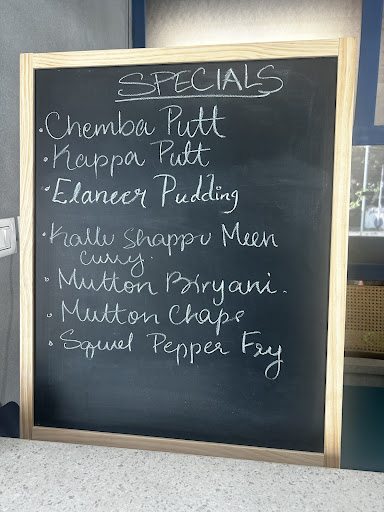 SPECIALS
• Chemba Putt
• Kappa Putt
• Elaneer Pudding
• Kallu Shappu Meen
curry.
• Mutton Biryani.
• Mutton Chaps
• Squiel Pepper Fry